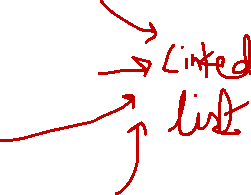 Linked
list